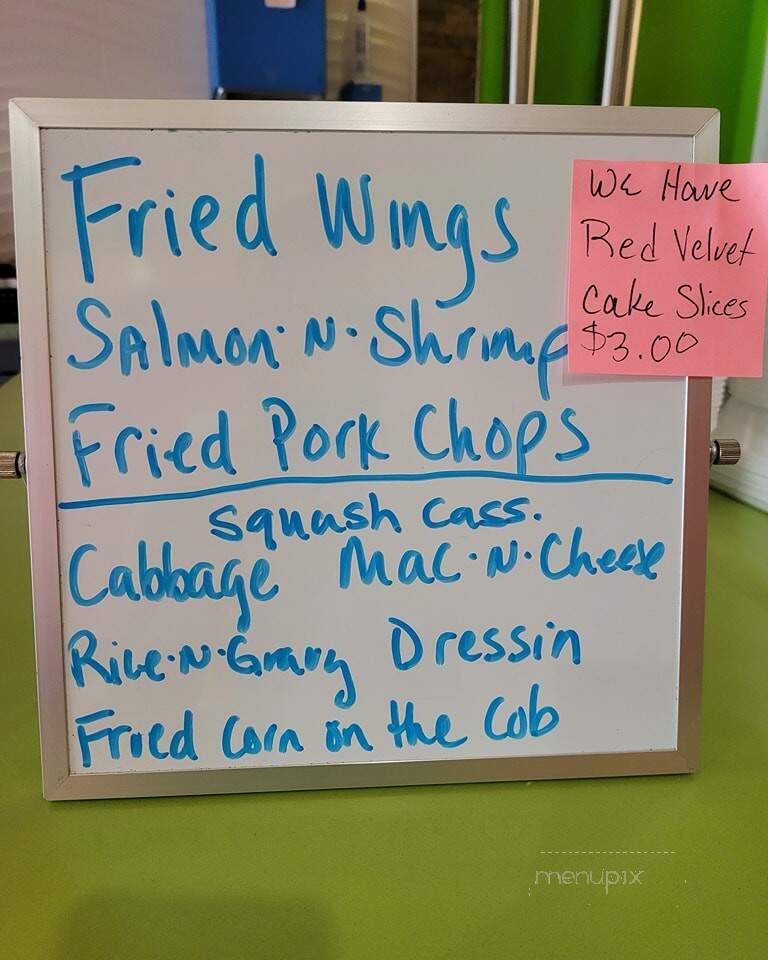 Fried Wings
Salmon·N·Shrimp
Fried Pork Chops
Squash Cass.
Cabbage Mac·N·Cheese
Rice·N·Gravy Dressin
Fried Corn on the Cob
We Have
Red Velvet
Cake Slices
$3.00
menupix